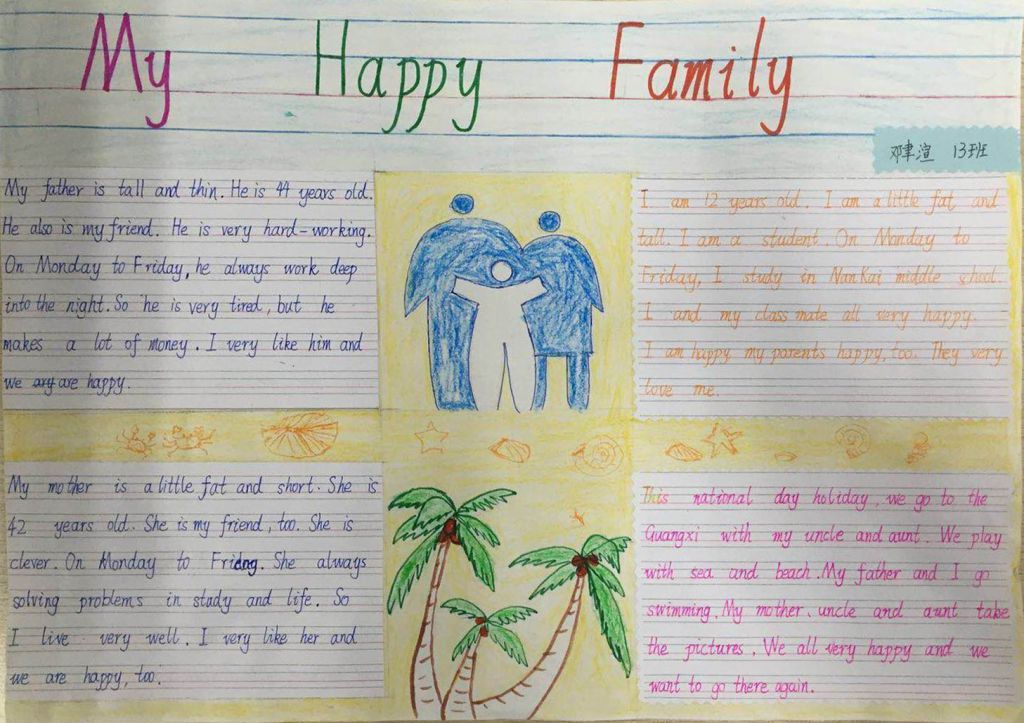 My Happy Family
邓聿渲 13班
My father is tall and thin. He is 44 years old.
He also is my friend. He is very hard-working.
On Monday to Friday, he always work deep
into the night. So he is very tired, but he
makes a lot of money. I very like him and
we are happy.
I am 12 years old. I am a little fat, and
tall. I am a student. On Monday to
Friday, I study in NanKai middle school.
I and my class mate all very happy.
I am happy, my parents happy, too. They very
love me.
My mother is a little fat and short. She is
42 years old. She is my friend, too. She is
clever. On Monday to Friday. She always
solving problems in study and life. So
I live very well. I very like her and
we are happy, too.
This national day holiday, we go to the
Guangxi with my uncle and aunt. We play
with sea and beach. My father and I go
swimming. My mother, uncle and aunt take
the pictures. We all very happy and we
want to go there again.